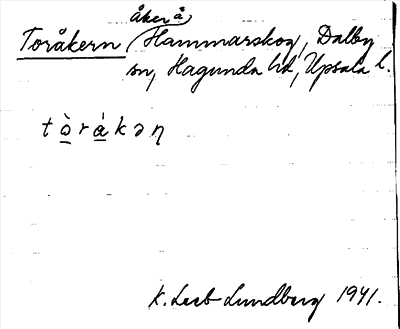 åker å
Toråkern Hammarskog, Dalby
sn, Hagunda hd, Upsala l.
tò̱rá̱kəņ
K. Leeb-Lundberg 1941.